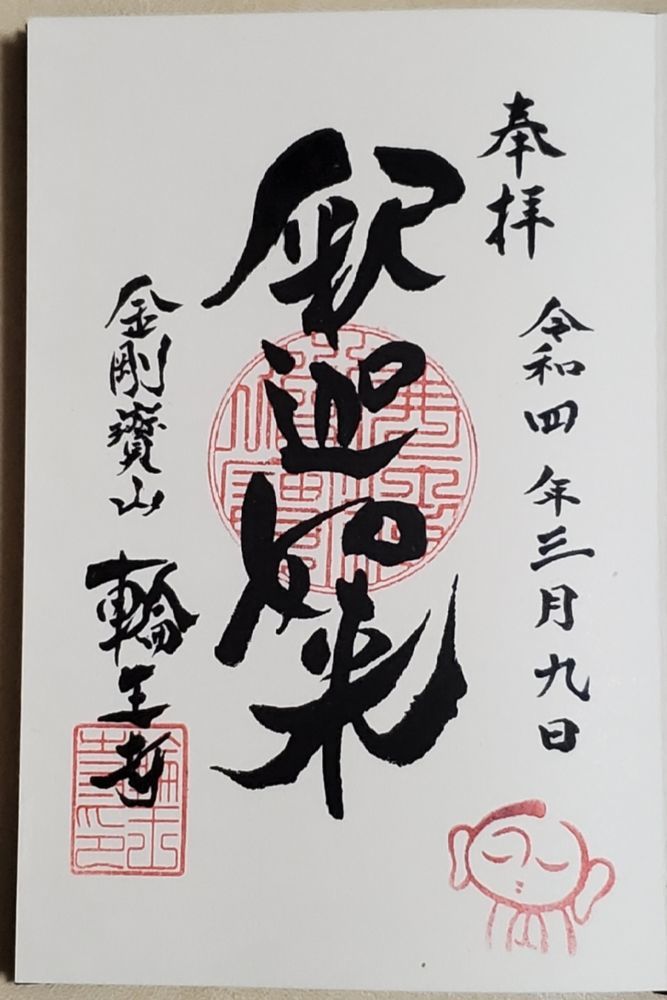 奉拝
令和四年三月九日
釈迦如来
金剛寶山
輪王寺
輪王寺印